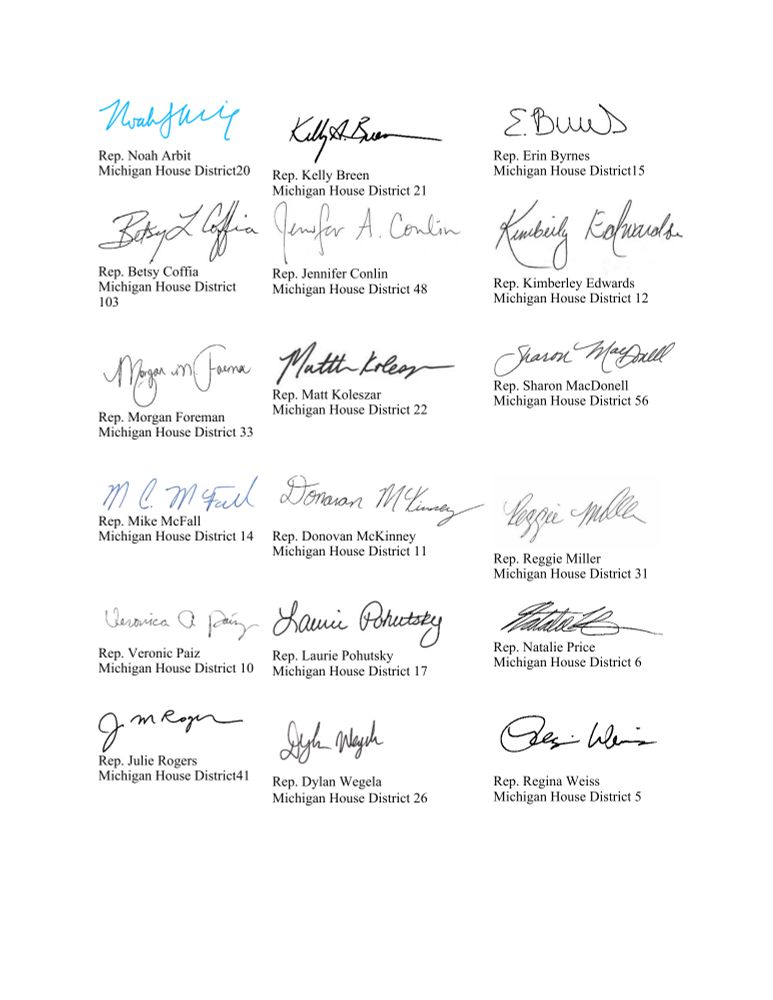 Rep. Noah Arbit
Michigan House District20
Kelly A. Breen
Rep. Kelly Breen
Michigan House District 21
Rep. Erin Byrnes
Michigan House District15
Betsy L Coffia
Rep. Betsy Coffia
Michigan House District
103
Jennifer A. Conlin
Rep. Jennifer Conlin
Michigan House District 48
Kimberly Edwards
Rep. Kimberley Edwards
Michigan House District 12
Morgan M Foreman
Rep. Morgan Foreman
Michigan House District 33
Matt Koleszar
Rep. Matt Koleszar
Michigan House District 22
Sharon MacDonell
Rep. Sharon MacDonell
Michigan House District 56
M C. McFall
Rep. Mike McFall
Michigan House District 14
Donavan McKinney
Rep. Donovan McKinney
Michigan House District 11
Reggie Miller
Rep. Reggie Miller
Michigan House District 31
Veronica A Paiz
Rep. Veronic Paiz
Michigan House District 10
Laurie Pohutsky
Rep. Laurie Pohutsky
Michigan House District 17
Rep. Natalie Price
Michigan House District 6
J. M Rogers
Rep. Julie Rogers
Michigan House District41
Dylan Wegela
Rep. Dylan Wegela
Michigan House District 26
Rep. Regina Weiss
Michigan House District 5